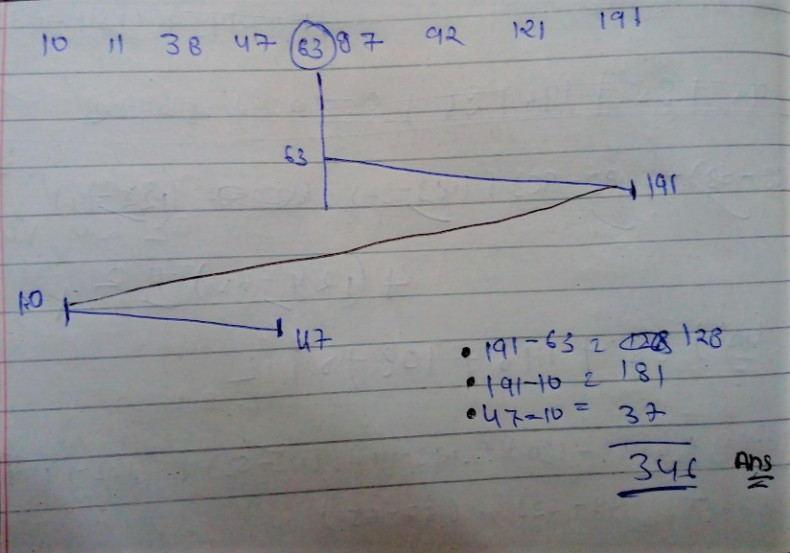 10 11 38 47 63 87 92 121 191
63
191
10
47
• 191-63 = 128
• 191-10 = 181
• 47-10 = 37
346 Ans